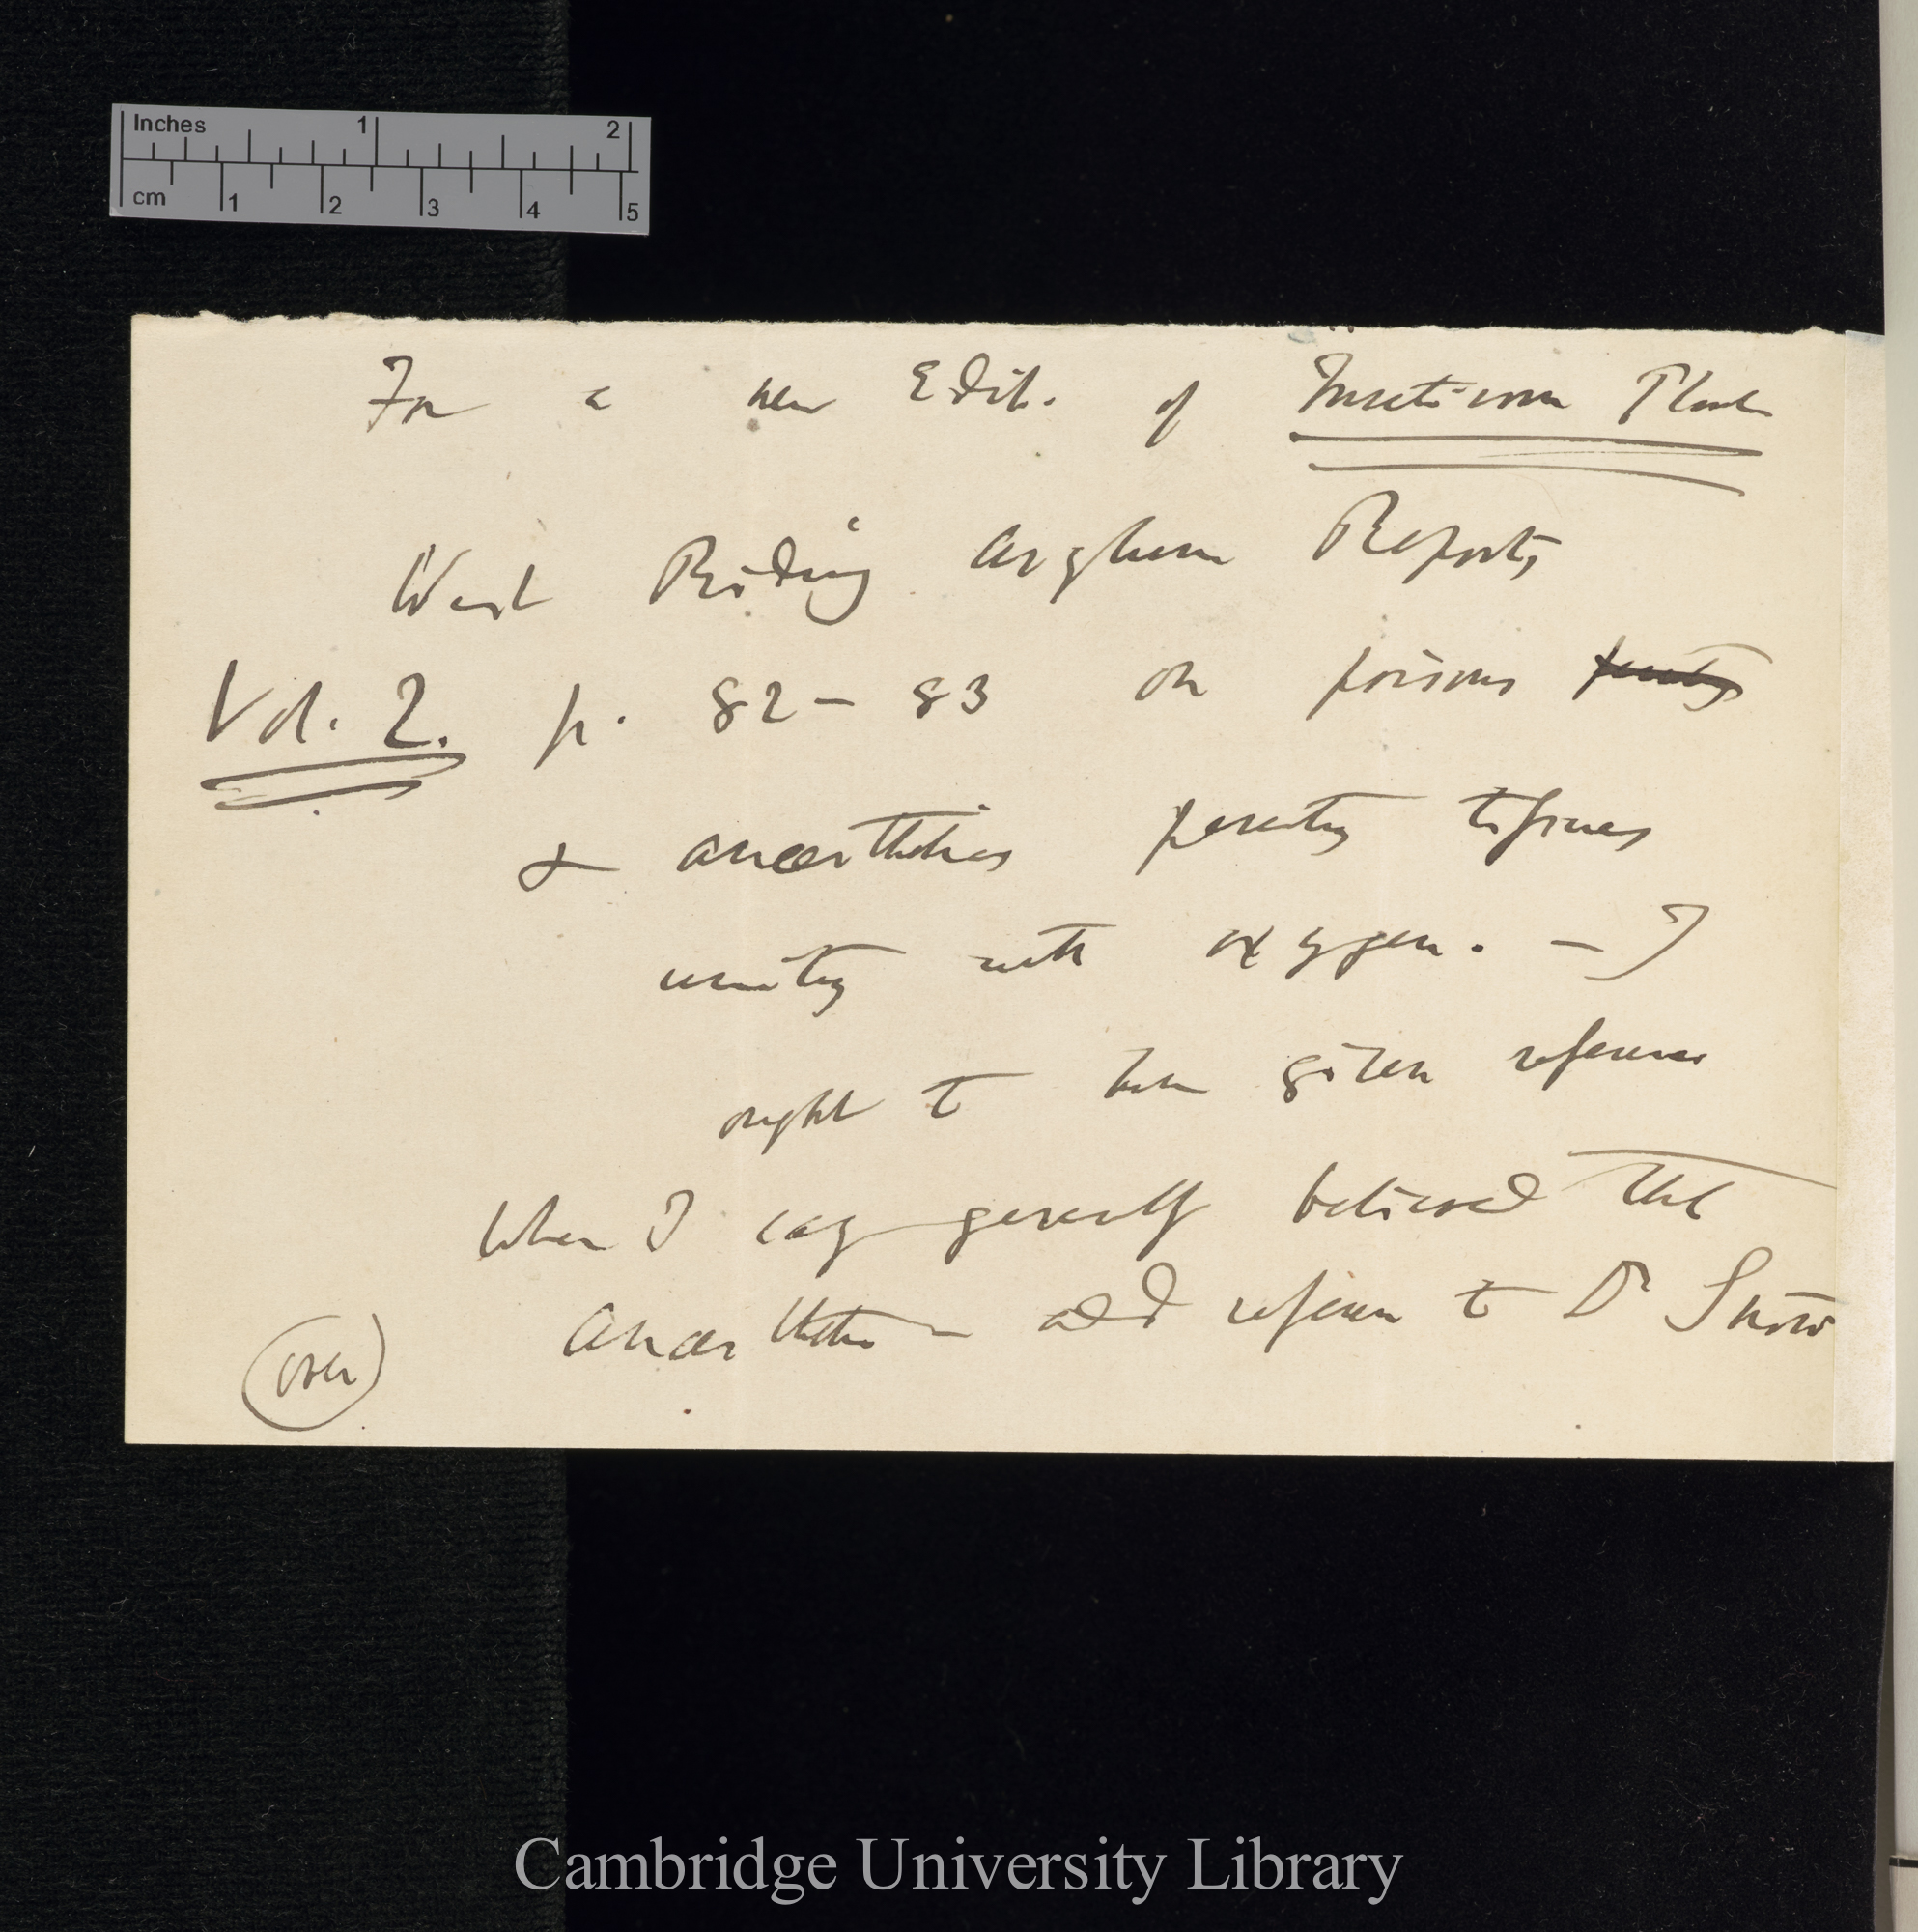 Inches 1 2
cm 1 2 3 4 5
For a new Edit. of Insectivorous Plants
West Riding Asylum Reports
Vol. 2. p. 82–83 on poisons
& anaesthetics preventing tissues
uniting with oxygen. — I
ought to have given references
When I say generally believed that
anaesthetics add reference to Dr Snow
(over)
Cambridge University Library